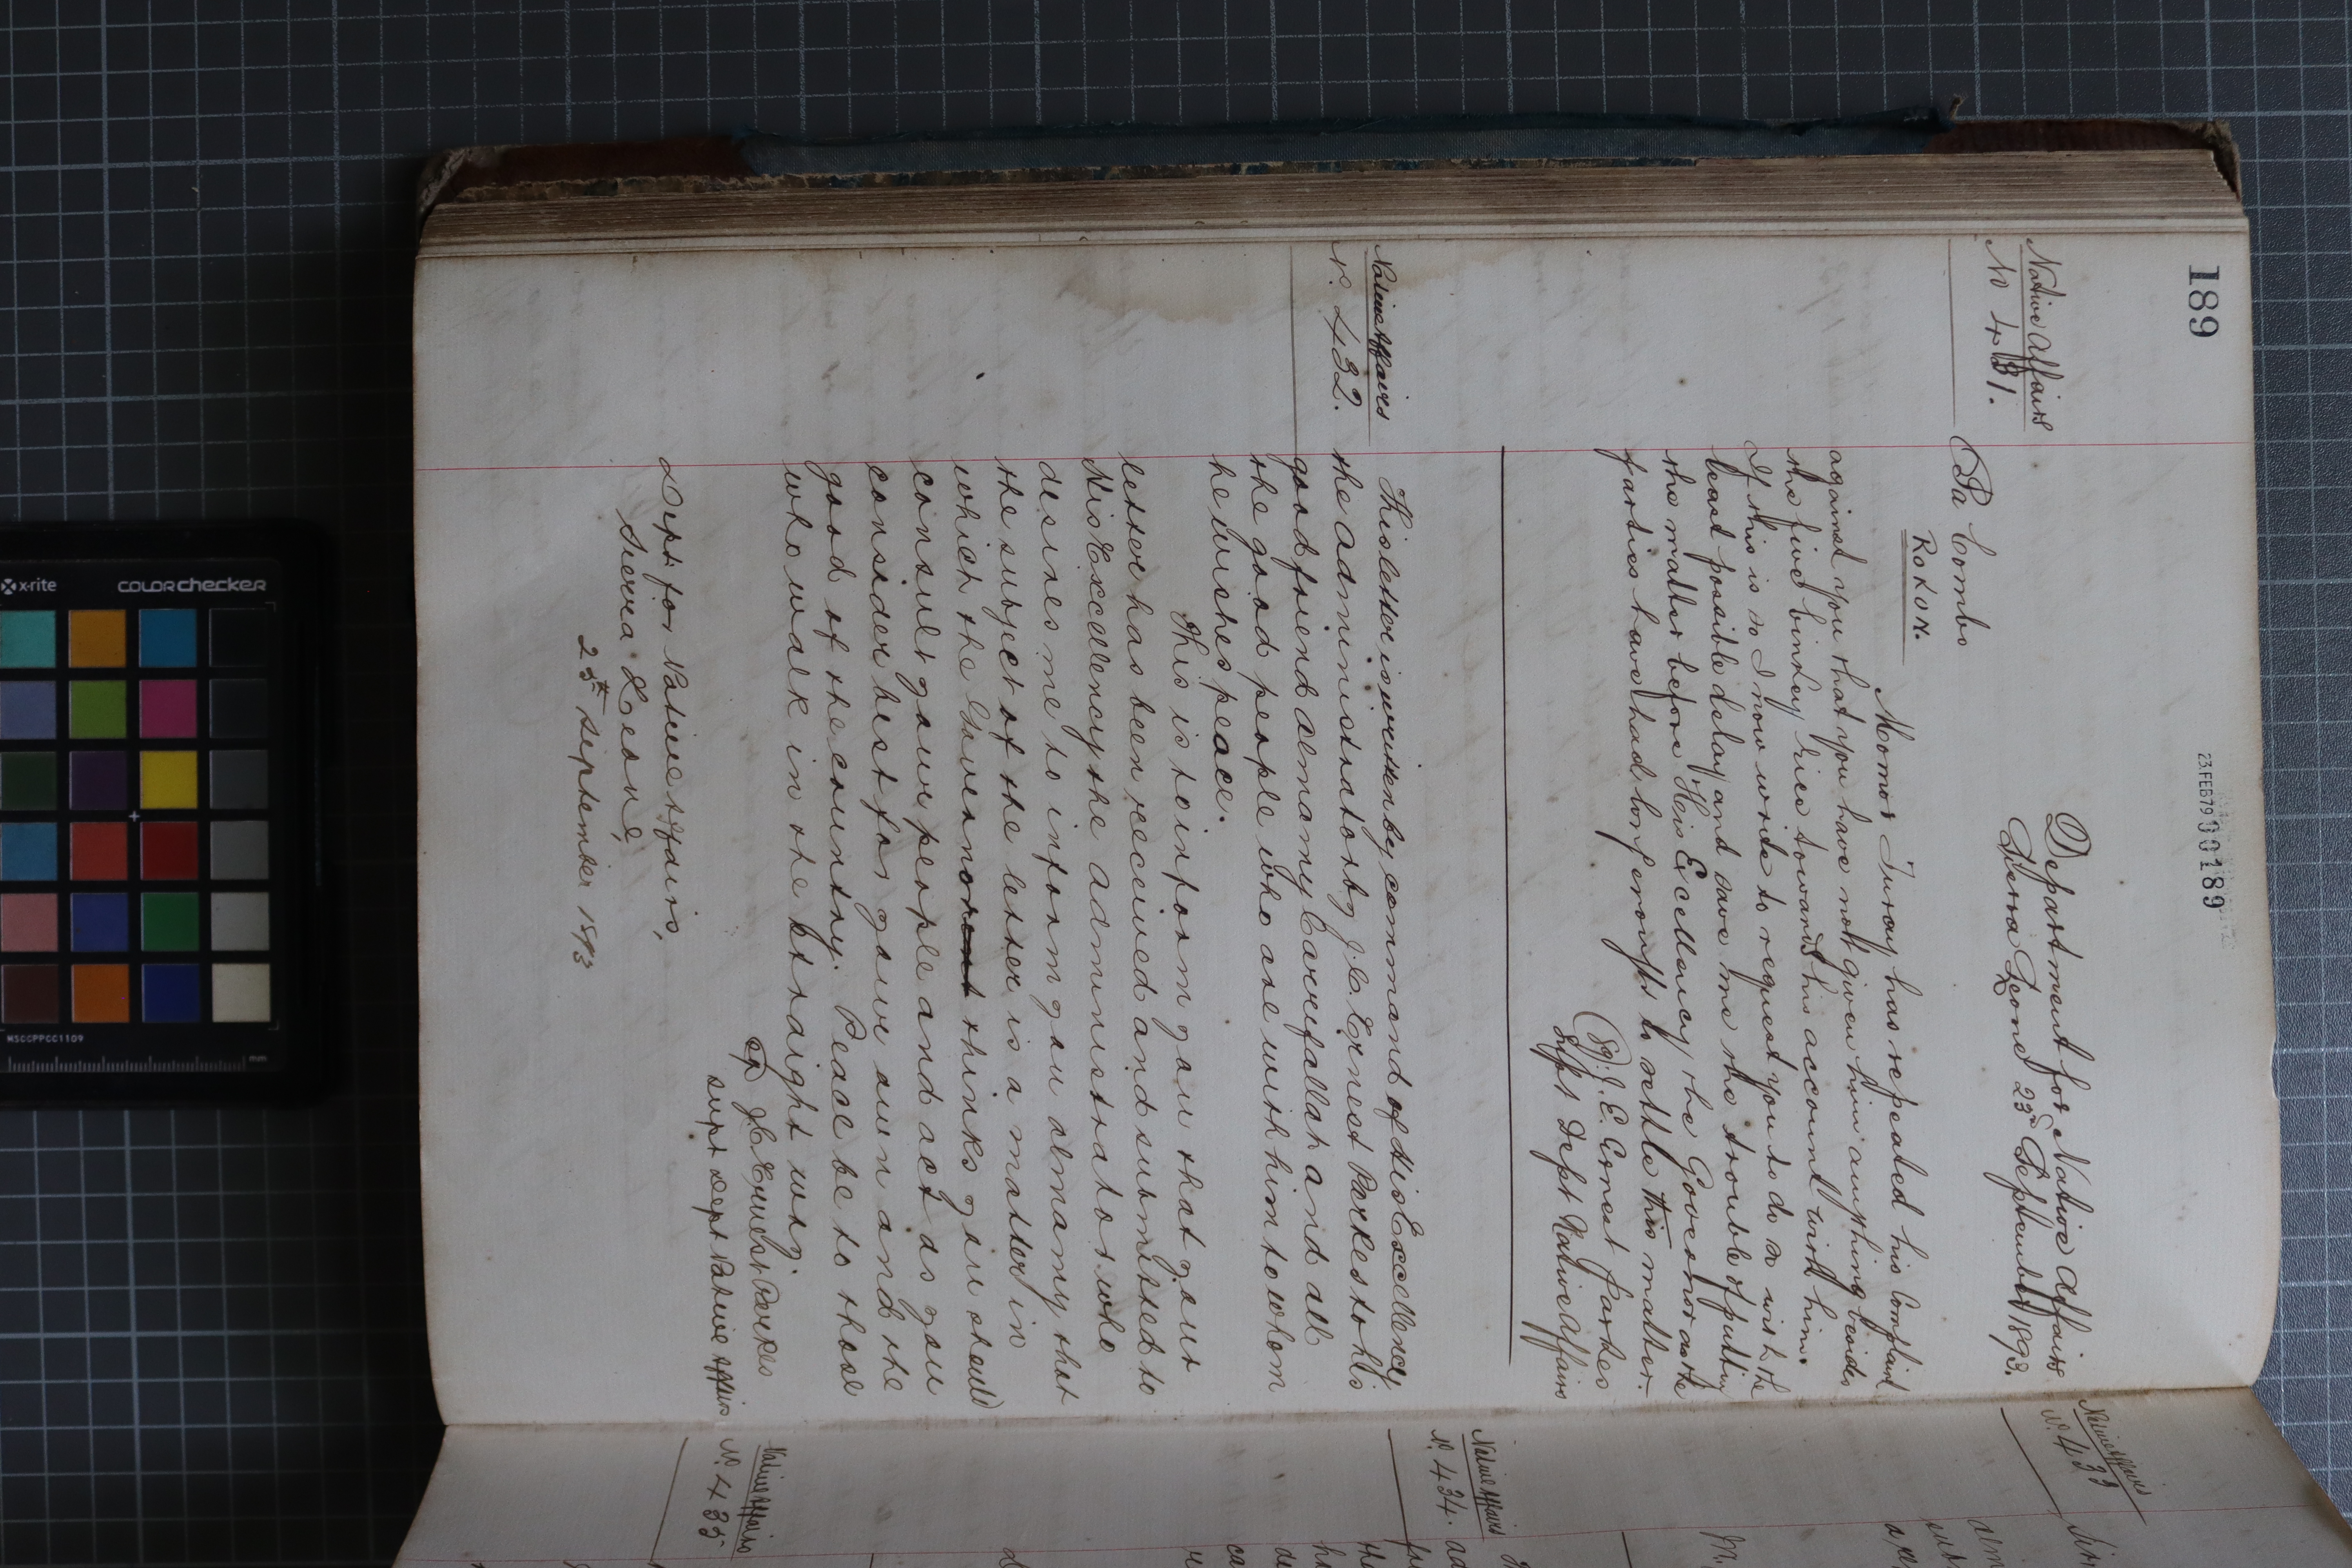 189
23.FEB79 00189
Native Affairs
No 431.
Department for Native Affairs
Sierra Leone 23rd September 1893.
Pa Combo
Rokon.
Momo Turay has repeated his Complaint
against you that you have not given him anything besides
the five binkey rice towards his account with him.
If this is so I now write to request you to do so with the
least possible delay and save me the trouble of putting
the matter before His Excellency the Governor as the
parties have had long enough to settle this matter.
(Sg.) J. E. Ernest Parkes
Supt Dept Native Affairs
Native Affairs
No. 432.
This letter is written by command of His Excellency
the Administrator by J. C. Ernest Parkes to his
good friend Almamy Carrefallah and all
the good people who are with him to whom
he wishes peace.
This is to inform you that your
letter has been received and submitted to
His Excellency the Administrator who
desires me to inform you Almamy that
the subject of the letter is a matter in
which the Governor thinks you should
consult your people and act as you
consider best for your own and the
good of the country. Peace be to those
who walk in the straight way.
J. C. Ernest Parkes
Supt Dept Native Affairs
Dept for Native Affairs,
Sierra Leone,
25th September 1893
Native Affairs
No. 433
Native Affairs
No. 434.
Native Affairs
No. 435
x-rite
COLORchecker
MSCCPPCC1109
mm